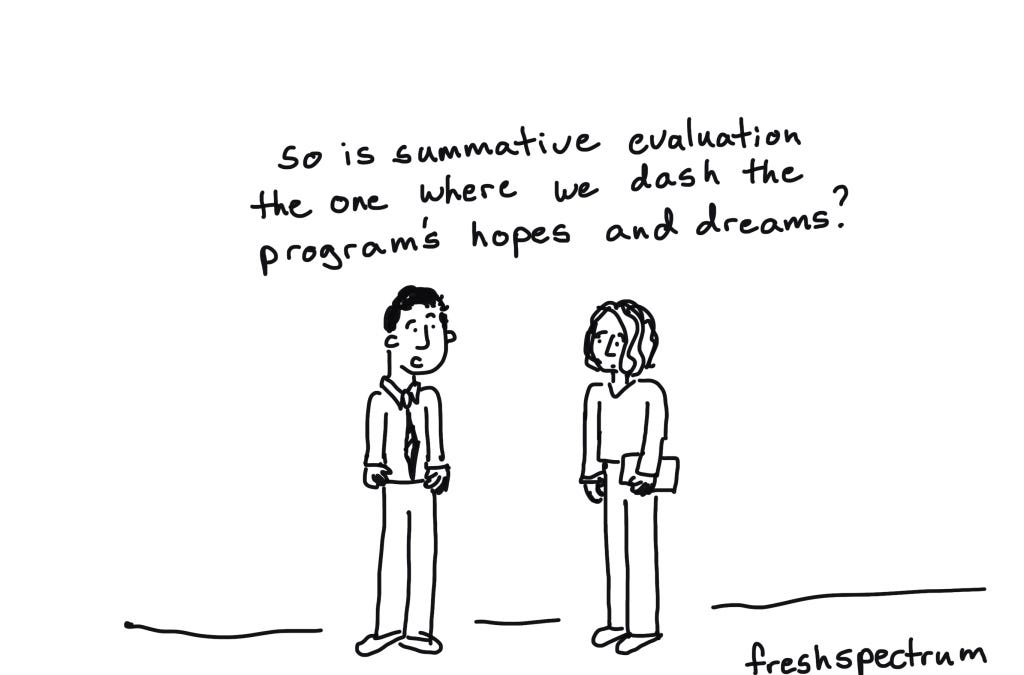 so is summative evaluation
the one where we dash the
program's hopes and dreams?
freshspectrum